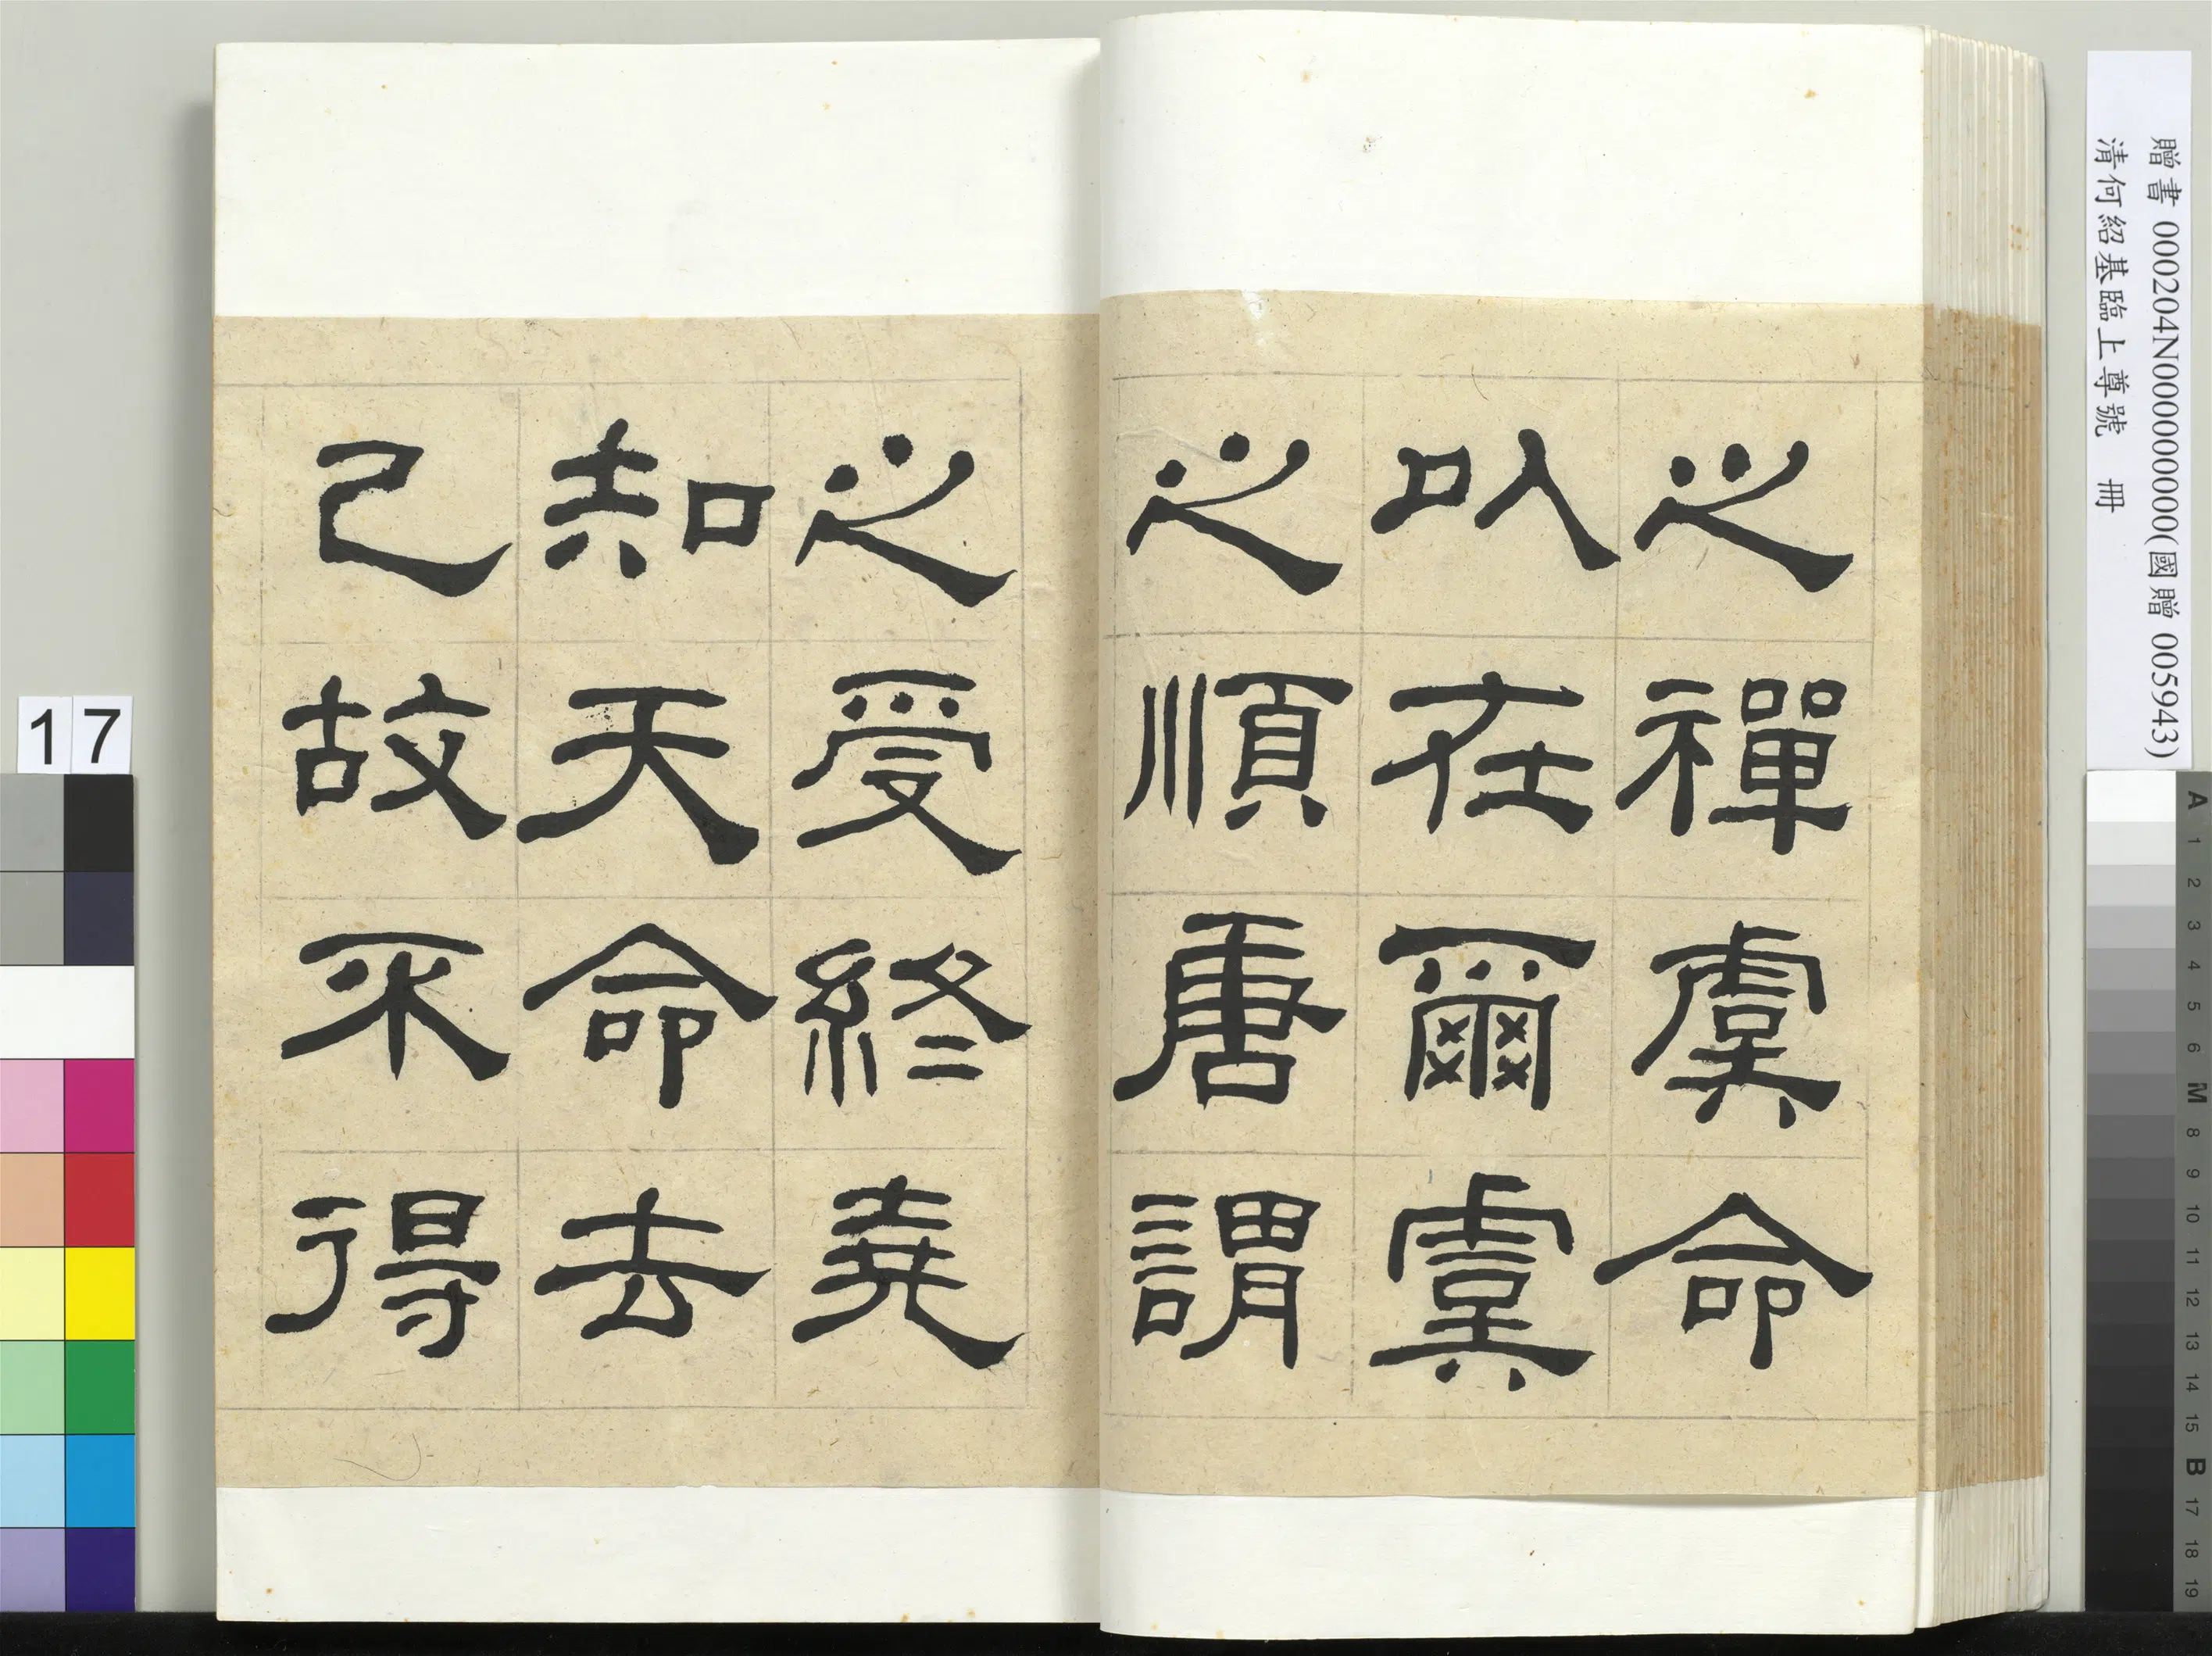 之禪虞命
以在爾虞
之順唐謂
之受終堯
知天命去
己故不得
贈書 000204N000000000(國贈 005943)
清何紹基臨上尊號 冊
17
A
1
2
3
4
5
6
M
8
9
10
11
12
13
14
15
B
17
18
19